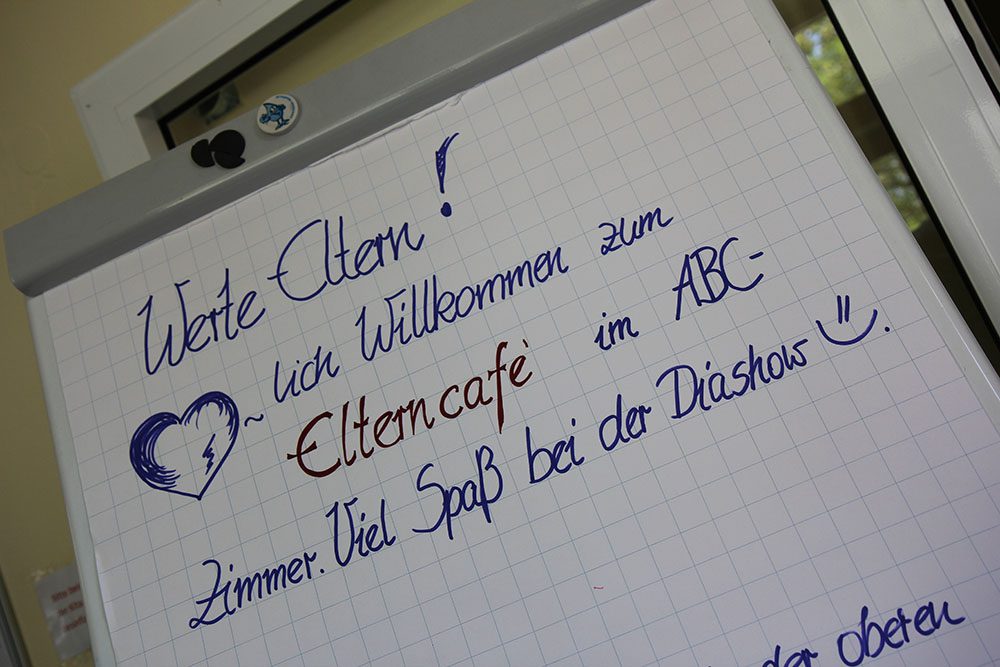 Werte Eltern!
~ lich Willkommen zum
Elterncafè im ABC-
Zimmer. Viel Spaß bei der Diashow
der oberen